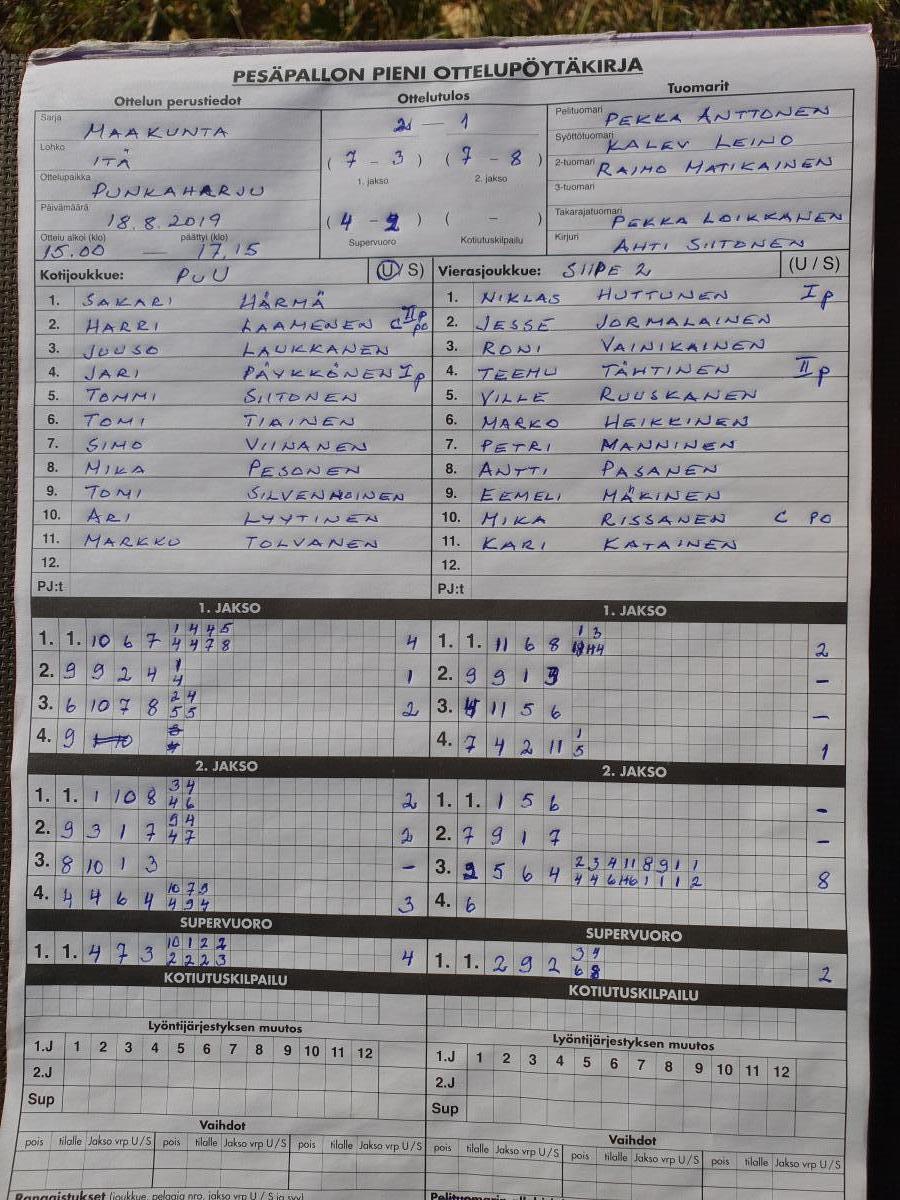 PESÄPALLON PIENI OTTELUPÖYTÄKIRJA
Ottelun perustiedot
Sarja MAAKUNTA
Lohko ITÄ
Ottelupaikka PUNKAHARJU
Päivämäärä 18.8.2019
Ottelu alkoi (klo) päättyi (klo)
15.00 — 17.15
Ottelutulos
2 — 1
(7 - 3) (7 - 8)
1. jakso 2. jakso
(4 - 2) ( - )
Supervuoro Kotiutuskilpailu
Tuomarit
Pelituomari PEKKA ANTTONEN
Syöttötuomari KALEV LEINO
2-tuomari RAIMO MATIKAINEN
3-tuomari
Takarajatuomari PEKKA LOIKKANEN
Kirjuri AHTI SIITONEN
Kotijoukkue: PUU (U/S)
1. SAKARI HÄRMÄ
2. HARRI LAAMENEN C IIp po
3. JUUSO LAUKKANEN
4. JARI PÄYKKÖNEN Ip
5. TOMMI SIITONEN
6. TOMI TIAINEN
7. SIMO VIINANEN
8. MIKA PESONEN
9. TOMI SILVENNOINEN
10. ARI LYYTINEN
11. MARKKU TOLVANEN
12.
PJ:t
Vierasjoukkue: SIIPE 2 (U / S)
1. NIKLAS HUTTUNEN Ip
2. JESSE JORMALAINEN
3. RONI VAINIKAINEN
4. TEEMU TÄHTINEN IIp
5. VILLE RUUSKANEN
6. MARKO HEIKKINEN
7. PETRI MANNINEN
8. ANTTI PASANEN
9. EEMELI MÄKINEN
10. MIKA RISSANEN C PO
11. KARI KATAINEN
12.
PJ:t
1. JAKSO
1 4 4 5
1. 1. 10 6 7 4 4 7 8 4
1
2. 9 9 2 4 4 1
2 4
3. 6 10 7 8 5 5 2
4. 9
2. JAKSO
3 4
1. 1. 1 10 8 4 6 2
9 4
2. 9 3 1 7 4 7 2
3. 8 10 1 3 -
10 7 9
4. 4 4 6 4 4 9 4 3
SUPERVUORO
10 1 2 2
1. 1. 4 7 3 2 2 2 3 4
KOTIUTUSKILPAILU
Lyöntijärjestyksen muutos
1.J 1 2 3 4 5 6 7 8 9 10 11 12
2.J
Sup
Vaihdot
pois tilalle Jakso vrp U/S pois tilalle Jakso vrp U/S pois tilalle Jakso vrp U/S
Rangaistukset (joukkue, pelaaja nro, jakso vrp U / S ja syy)
1. JAKSO
1 3
1. 1. 11 6 8 2
2. 9 9 1 3 -
3. 4 11 5 6 -
1
4. 7 4 2 11 5 1
2. JAKSO
1. 1. 1 5 6 -
2. 7 9 1 7 -
2 3 4 11 8 9 1 1
3. 2 5 6 4 4 4 6 1 1 1 2 8
4. 6
SUPERVUORO
3 4
1. 1. 2 9 2 6 8 2
KOTIUTUSKILPAILU
Lyöntijärjestyksen muutos
1.J 1 2 3 4 5 6 7 8 9 10 11 12
2.J
Sup
Vaihdot
pois tilalle Jakso vrp U/S pois tilalle Jakso vrp U/S pois tilalle Jakso vrp U/S